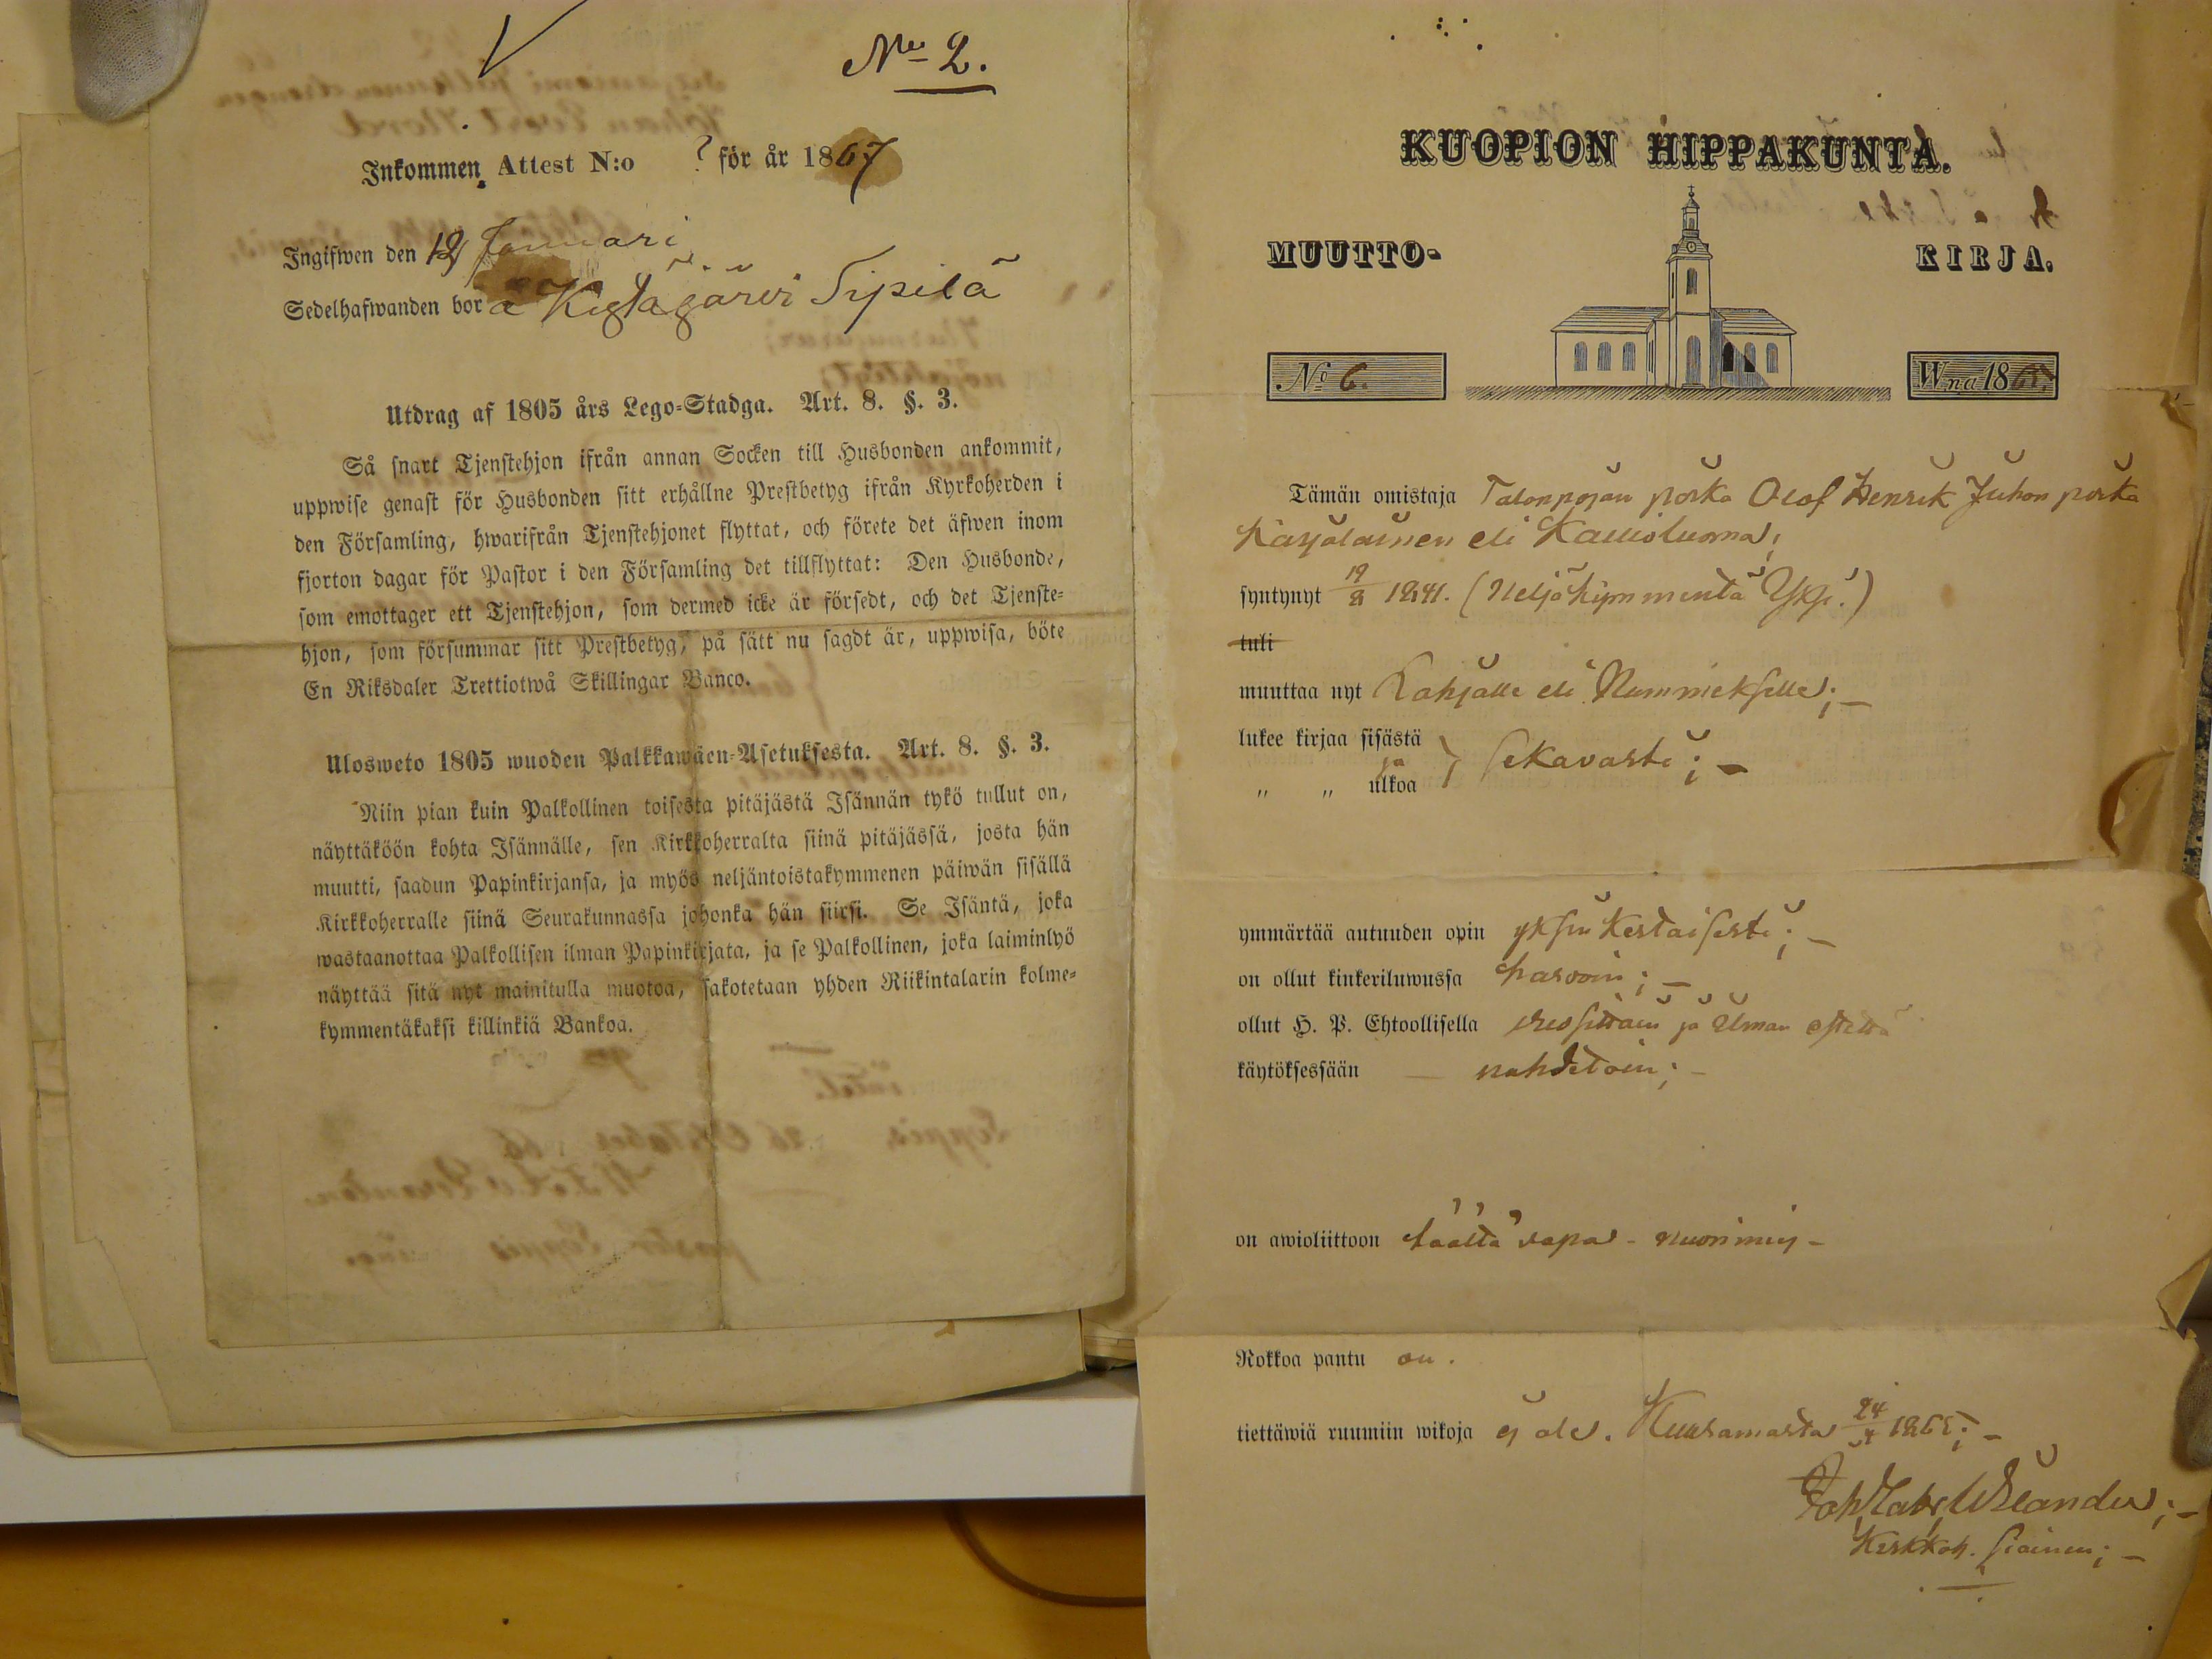 No 2.
Inkommen Attest N:o ? för år 1867
Ingifwen den 12 Januari
Sedelhafwanden bor å Kystäjärvi Sipilä
Utdrag af 1805 års Lego-Stadga. Art. 8. §. 3.
Så snart Tjenstehjon ifrån annan Socken till Husbonden ankommit,
uppwise genast för Husbonden sitt erhållne Prestbetyg ifrån Kyrkoherden i
den Församling, hwarifrån Tjenstehjonet flyttat, och förete det äfwen inom
fjorton dagar för Pastor i den Församling det tillflyttat: Den Husbonde,
som emottager ett Tjenstehjon, som dermed icke är försedt, och det Tjenste-
hjon, som försummar sitt Prestbetyg, på sätt nu sagdt är, uppwisa, böte
En Riksdaler Trettiotwå Skillingar Banco.
Ulosweto 1805 wuoden Palkkawäen-Asetuksesta. Art. 8. §. 3.
Niin pian kuin Palkollinen toisesta pitäjästä Isännän tykö tullut on,
näyttäköön kohta Isännälle, sen Kirkkoherralta siinä pitäjässä, josta hän
muutti, saadun Papinkirjansa, ja myös neljäntoistakymmenen päiwän sisällä
Kirkkoherralle siinä Seurakunnassa johonka hän siirsi. Se Isäntä, joka
wastaanottaa Palkollisen ilman Papinkirjata, ja se Palkollinen, joka laiminlyö
näyttää sitä nyt mainitulla muotoa, sakotetaan yhden Riikintalarin kolme-
kymmentäkaksi killinkiä Bankoa.
KUOPION HIPPAKUNTA.
MUUTTO- KIRJA.
No 6. Wna 1865.
Tämän omistaja Talonpojan poika Olof Henrik Juhon poika
Karjalainen eli Kallioluoma;
syntynyt 19/8 1841. (Neljäkymmentä Yksi.)
tuli
muuttaa nyt Rahjalle eli Nummiekselle; —
lukee kirjaa sisästä
ja } sekavasti; —
„ „ ulkoa
ymmärtää autuuden opin yksinkertaisesti; —
on ollut kinkeriluwussa harvoin; —
ollut H. P. Ehtoollisella wuosittain ja ilman estettä
käytöksessään — nuhditoin; —
on awioliittoon täältä vapa - nuorimies -
Rokkoa pantu on.
tiettäwiä ruumiin wikoja ej ole. Kuusamosta 24/4 1865; —
Kirkkoh. siainen; —